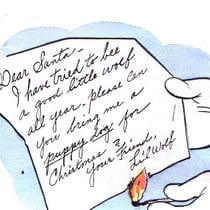 Dear Santa—
I have tried to bee
a good little wolf
all year. please can
you bring me a
puppy dog for
Christmas?
your friend,
Lil Wolf